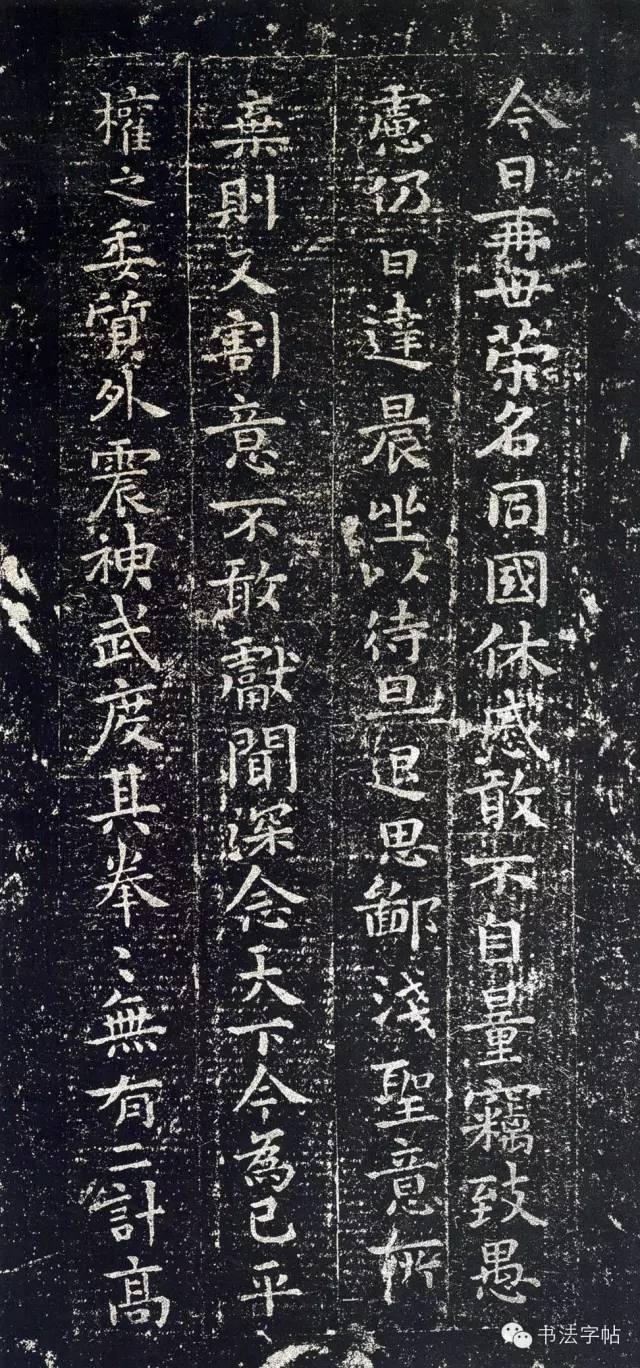 今日再世荣名同國休慼敢不自量竊致愚
慮仍日達晨坐以待旦退思鄙淺聖意所
棄則又割意不敢獻聞深念天下今為已平
權之委質外震神武度其拳〻無有二計高
书法字帖